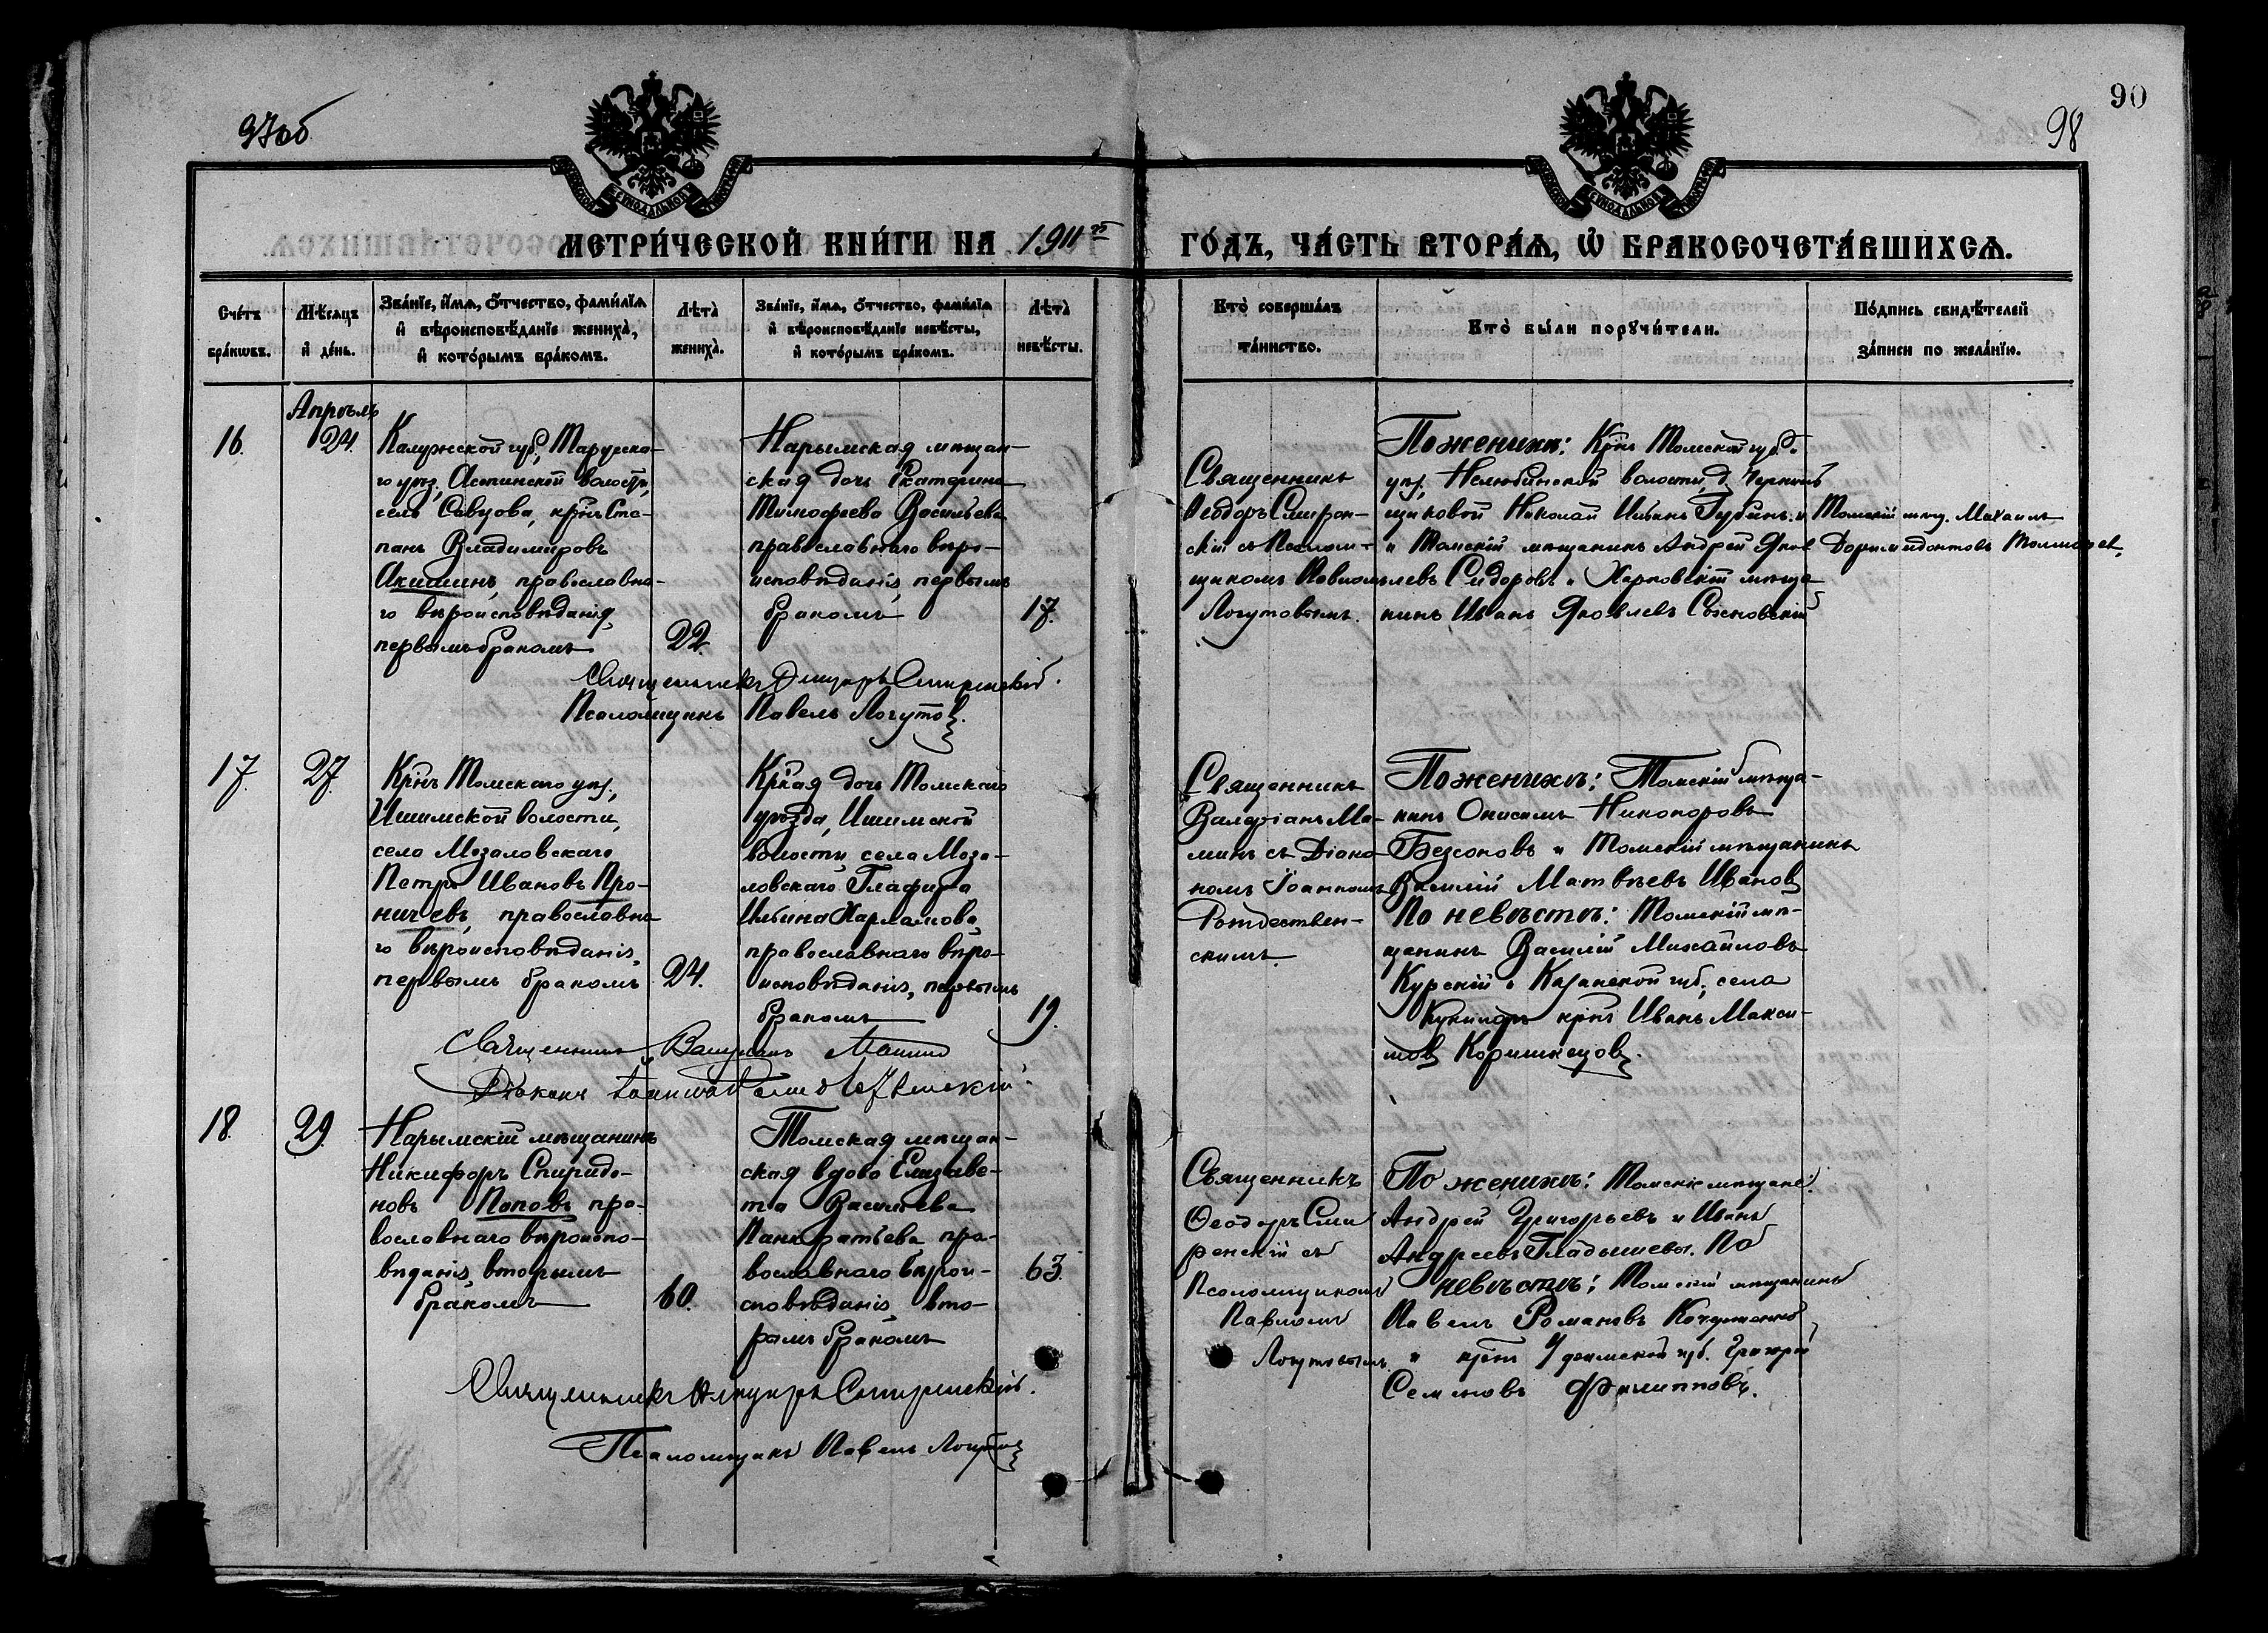 97об
90
98
МЕТРИ́ЧЕСКОЙ КНИ́ГИ НА 1911й ГО́ДЪ, ЧА́СТЬ ВТОРА́Я, Ѡ БРАКОСОЧЕТА́ВШИХСЯ.
Сче́тъ бра́кωвъ.
Мѣ́сяцъ и де́нь.
Зва́нїе, и́мя, ѻ́тчество, фами́лїя и вѣроисповѣ́данїе жениха̀, и кото́рымъ бра́комъ.
Лѣ́та̀ жениха̀.
Зва́нїе, и́мя, ѻ́тчество, фами́лїя и вѣроисповѣ́данїе невѣ́сты, и кото́рымъ бра́комъ.
Лѣ́та̀ невѣ́сты.
Кто̀ соверша́лъ та́инство.
Кто̀ бы́ли порꙋчи́тели.
По́дпись свидѣ́телей за́писи по жела́нїю.
Апрѣль
16.
24.
Калужской губ., Тарусска-
го уѣз.,
волости,
села Савцова, крнъ Сте-
панъ Владиміровъ
Акишинъ, православна-
го вѣроисповѣданія,
первымъ бракомъ
22.
Нарымская мѣщан-
ская дочь Екатерина
Тимофеева Васильева
православнаго вѣро-
исповѣданія, первымъ
бракомъ
17.
Священникъ
Ѳеодоръ Смирен-
скій съ Псалом-
щикомъ Павломъ
Логутовымъ.
По женихѣ: Крнъ Томской губ. и
уѣз., Нелюбинской волости, д. Черныль-
щиковой Николай Ильинъ Губинъ и
и Томскій мѣщанинъ Андрей Яков
левъ Сидоровъ и Харковскій мѣща
нинъ Иванъ Яковлевъ Сосновскій
Томскій мѣщ. Михаилъ
Доримидонтовъ
Священникъ Смиренскій.
Псаломщикъ Павелъ Логутов.
17.
27.
Крнъ Томскаго уѣз.,
Ишимской волости,
села Мозаловскаго
Петръ Ивановъ Про-
ничевъ, православна
го вѣроисповѣданія,
первымъ бракомъ
24.
Крская дочь Томскаго
уѣзда, Ишимской
волости, села Моза-
ловскаго Глафира
Ильина Харламова,
православнаго вѣро-
исповѣданія, первымъ
бракомъ
19.
Священникъ
Валеріанъ Ма-
минъ съ Діако-
номъ Іоанномъ
Рождествен-
скимъ.
По женихѣ: Томскій мѣща-
нинъ Онисимъ Никоноровъ
Безсоновъ и Томскій мѣщанинъ
Василій Матвѣевъ Иванов
По невѣстѣ: Томскій мѣ-
щанинъ Василій Михайловъ
Курскій и Казанской губ., села
крнъ Иванъ Макси-
мов
Священникъ Валеріанъ Маминъ
Діаконъ Іоаннъ Рождественскій.
18.
29.
Нарымскій мѣщанинъ
Никифоръ Спиридо-
новъ Поповъ пра-
вославнаго вѣроиспо-
вѣданія, вторымъ
бракомъ
60.
Томская мѣщан-
ская вдова Елизаве-
та Васильева
Панкратьева пра-
вославнаго вѣрои-
сповѣданія вто-
рымъ бракомъ
63.
Священникъ
Ѳеодоръ Сми
ренскій съ
Псаломщикомъ
Павломъ
Логутовымъ.
По женихѣ: Томскіе мѣщане:
Андрей Григорьевъ и Иванъ
Андреевъ Гладышевы. По
невѣстѣ: Томскій мѣщанинъ
Павелъ Романовъ
и губ. Григорій
Семеновъ Филипповъ.
Священникъ Смиренскій.
Псаломщикъ Павелъ Логутов